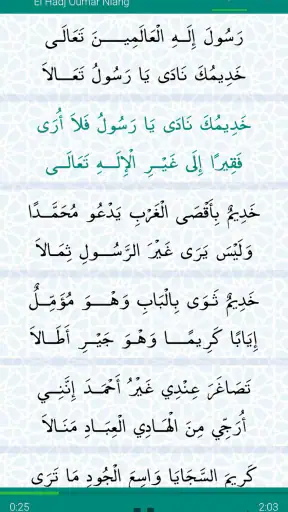 El Hadj Oumar Niang
رَسُولَ إِلَـهِ الْعَالَمِيـــــنَ تَعَالَـى
خَدِيمُكَ نَادَى يَا رَسُولُ تَعَـــالاَ
خَدِيمُكَ نَادَى يَا رَسُولُ فَلاَ أُرَى
فَقِيرًا إِلَى غَيْـــرِ الْإِلَــهِ تَعَالَــى
خَدِيمٌ بِأَقْصَى الْغَرْبِ يَدْعُو مُحَمَّـدًا
وَلَيْسَ يَرَى غَيْرَ الرَّســـولِ ثِمَـالاَ
خَدِيمٌ ثَـوَى بِالْبَابِ وَهْـــوَ مُؤَمِّـلٌ
إِيَابًا كَرِيمًـــا وَهْـوَ جَيْـــرِ أَطَـالاَ
تَصَاغَرَ عِنْدِي غَيْرُ أَحْمَـدَ إِنَّنِـــي
أُرَجِّي مِنَ الْهَـادِي الْعِبَـادِ مَنَـالاَ
كَرِيمَ السَّجَايَا وَاسِعَ الْجُودِ مَا تَرَى
0:25 2:03